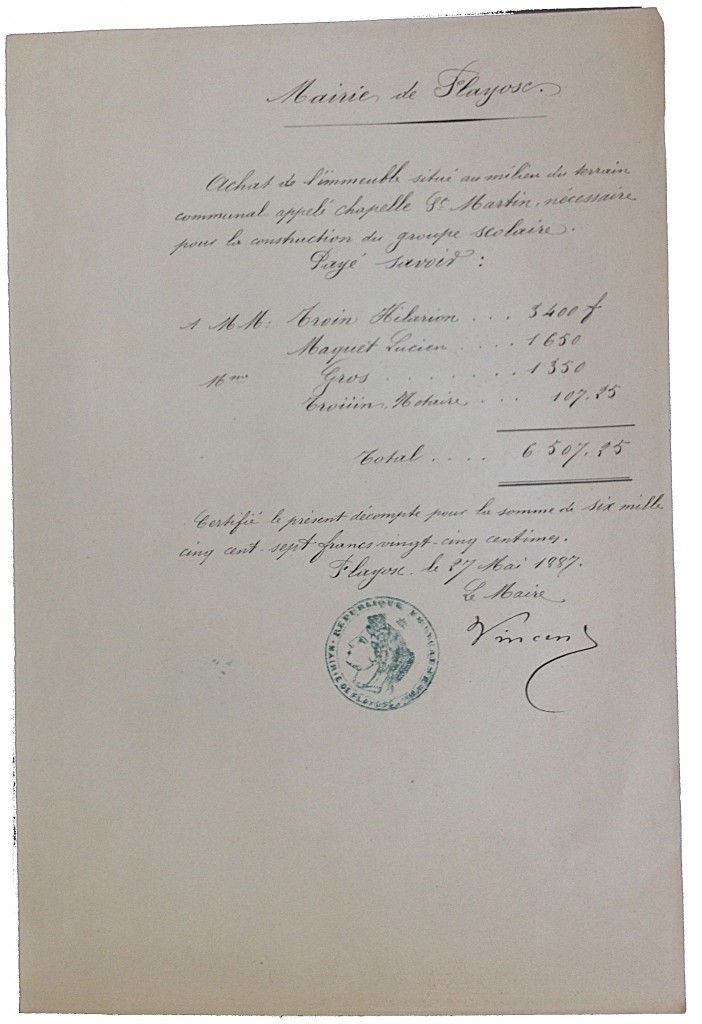 Mairie de Flayosc.
Achat de l'immeuble situé au milieu du terrain
communal appelé chapelle St. Martin, nécessaire
pour la construction du groupe scolaire.
Payé savoir :
à MM: Troin Hilarion . . . 3400 f
Maquet Lucien . . . . 1650
Mme Gros . . . . . . . 1350
Troüin, Notaire . . . 107.25
Total . . . . 6507,25
Certifié le présent décompte pour la somme de six mille
cinq cent-sept francs vingt-cinq centimes.
Flayosc le 27 Mai 1887.
Le Maire
RÉPUBLIQUE FRANÇAISE
MAIRIE DE FLAYOSC
Vincent